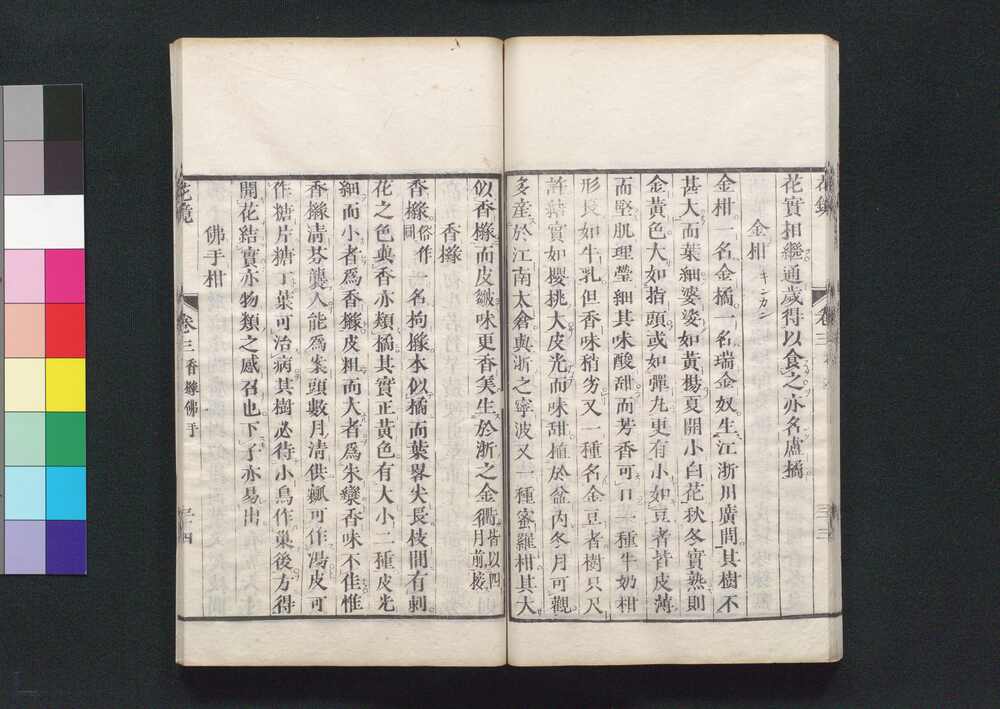 花鏡
卷三
三三
花實相繼通歲得以食之亦名盧橘
金柑 キンカン
金柑一名金橘一名瑞金奴生江浙川廣間其樹不
甚大而葉細婆娑如黃楊夏開小白花秋冬實熟則
金黃色大如指頭或如彈丸更有小如豆者皆皮薄
而堅肌理瑩細其味酸甜而芳香可口一種牛奶柑
形長如牛乳但香味稍劣又一種名金豆者樹只尺
許結實如櫻桃大皮光而味甜植於盆內冬月可觀
多產於江南太倉與浙之寧波又一種蜜羅柑其大
似香櫞而皮皺味更香美生於浙之金衢皆以四月前接
香櫞
香櫞俗作圓一名枸櫞本似橘而葉畧尖長枝間有刺
花之色與香亦類橘其實正黃色有大小二種皮光
細而小者爲香櫞皮粗而大者爲朱欒香味不佳惟
香櫞清芬襲人能爲案頭數月清供瓤可作湯皮可
作糖片糖丁葉可治病其樹必待小鳥作巢後方得
開花結實亦物類之感召也下子亦易出
佛手柑
花鏡
卷三 香櫞佛手
三四